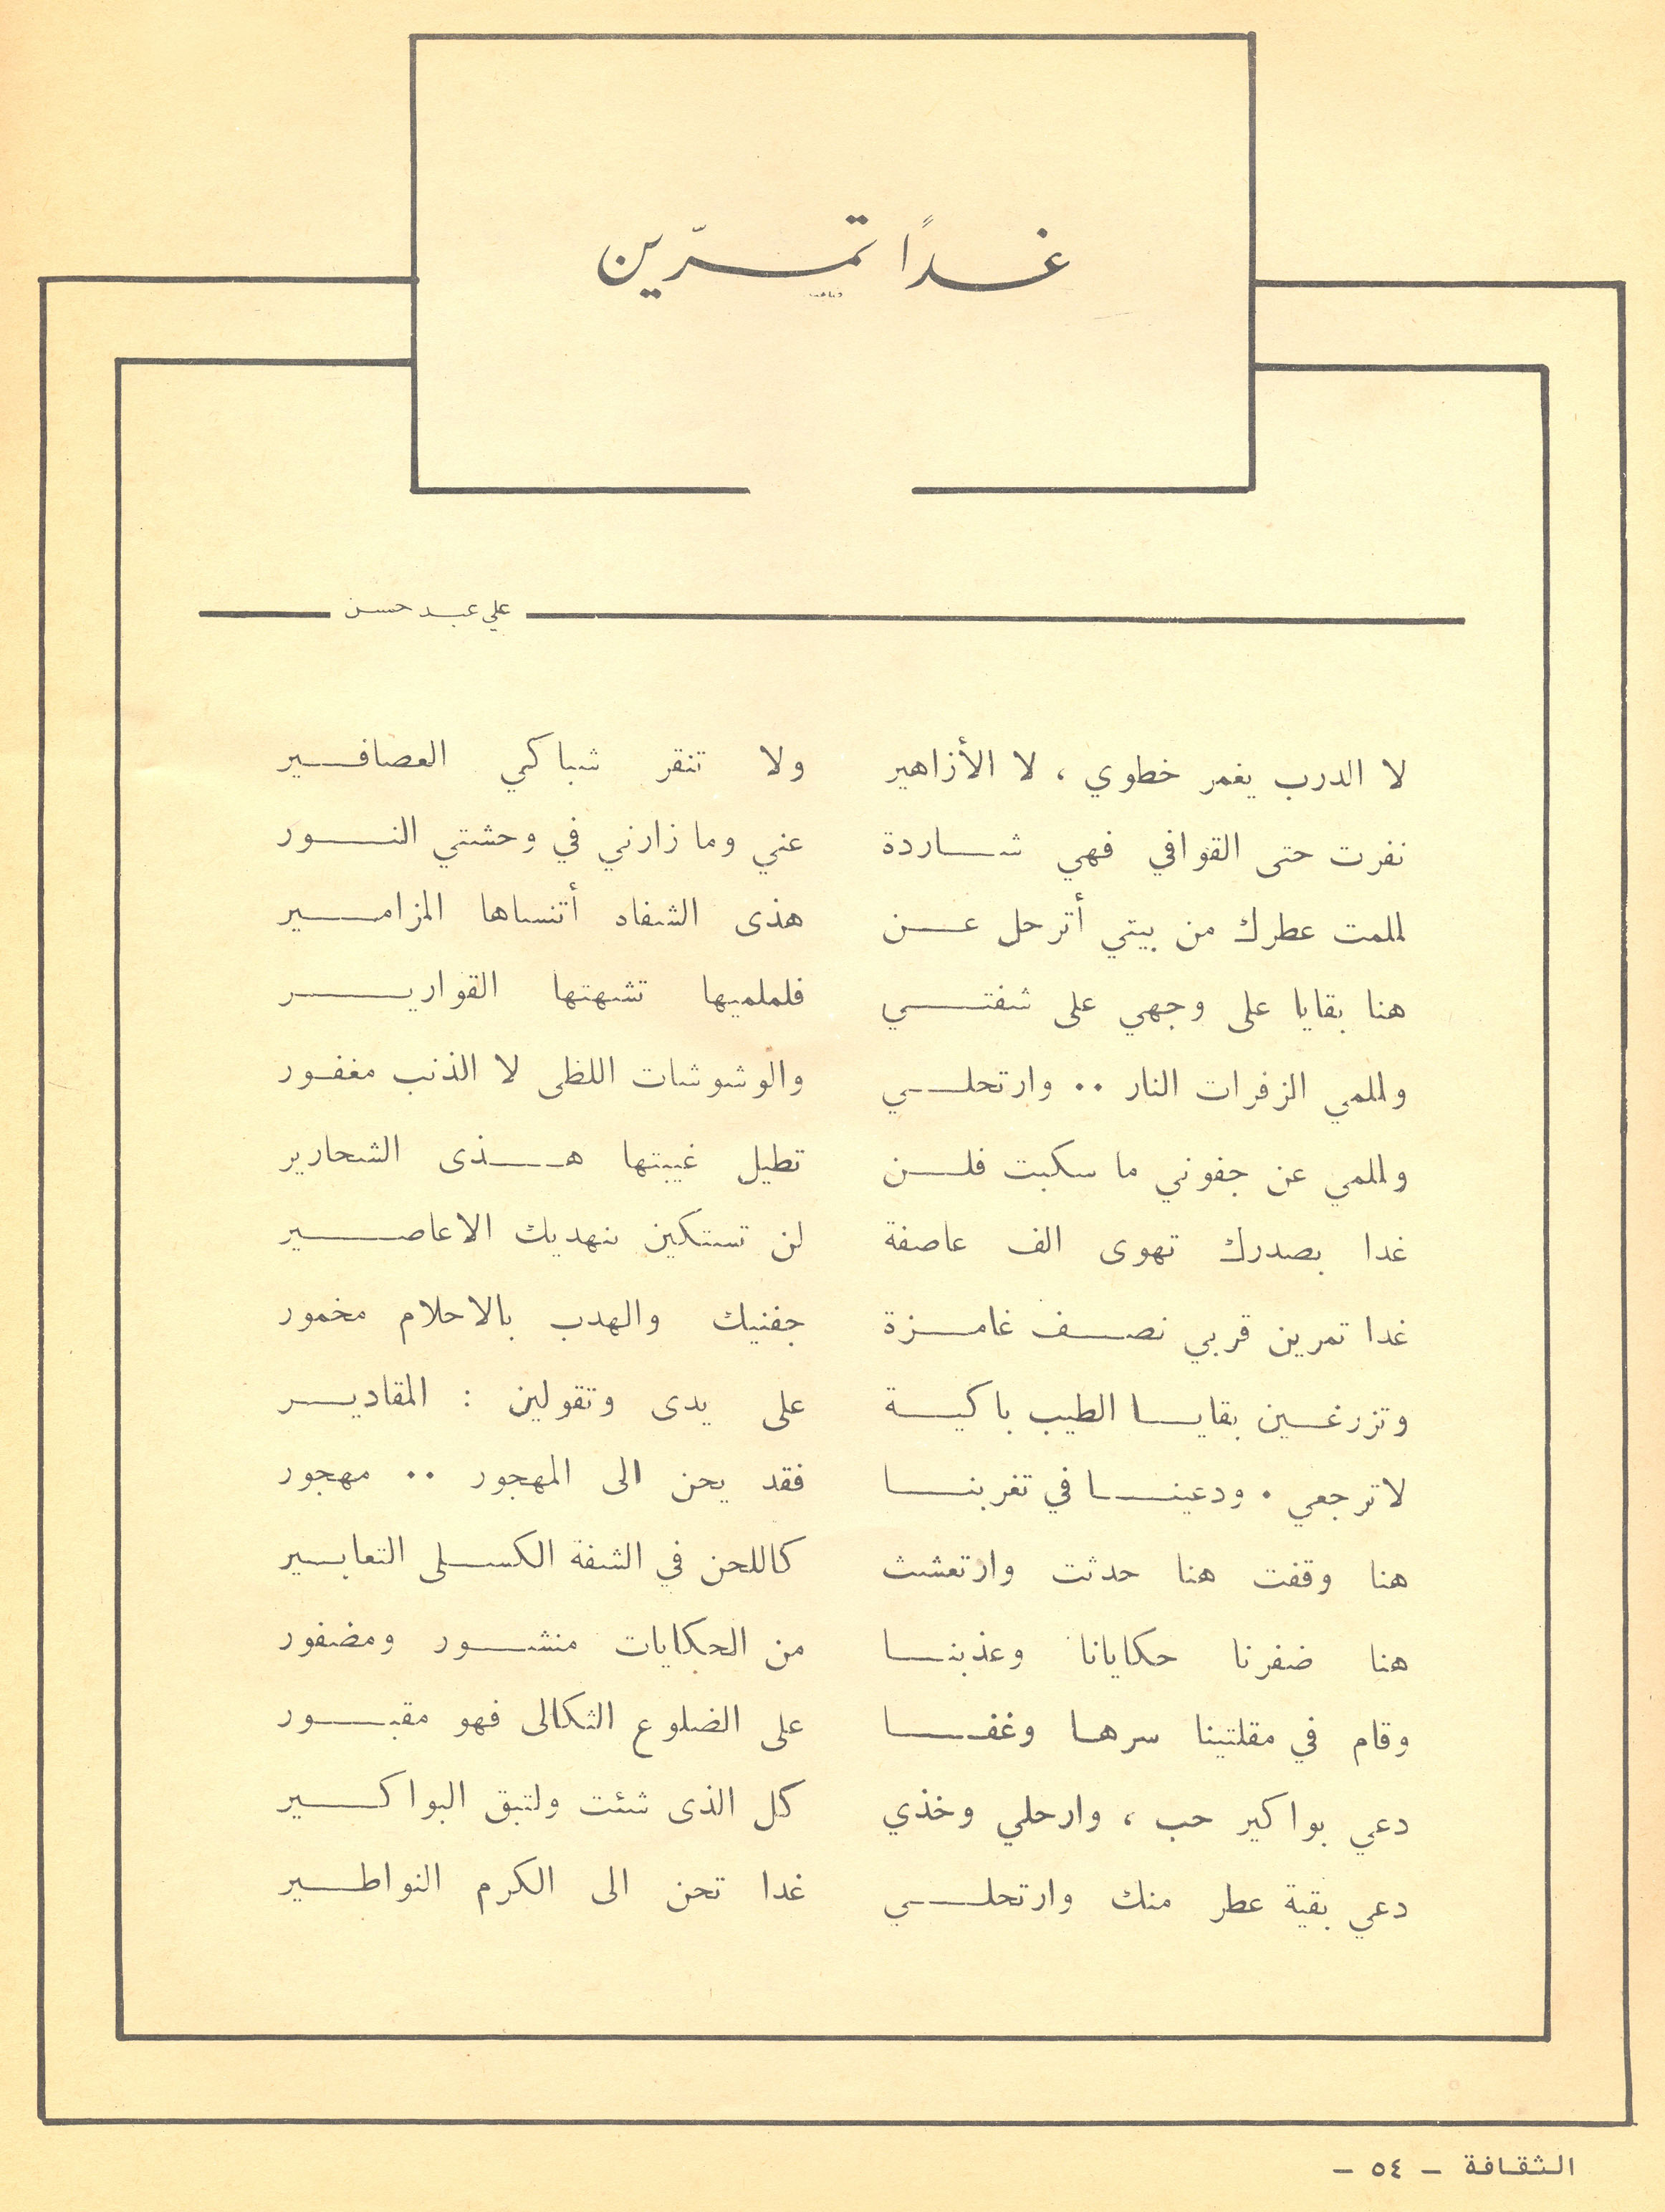 غدًا تمرّين
علي عبد حسن
لا الدرب يغمر خطوي ، لا الأزاهير ولا تنقر شباكي العصافير
نفرت حتى القوافي فهي شاردة عني وما زارني في وحشتي النور
لملمت عطرك من بيتي أترحل عن هذى الشفاه أتنساها المزامير
هنا بقايا على وجهي على شفتي فلملميها تشهتها القوارير
ولملمي الزفرات النار .. وارتحلي والوشوشات اللظى لا الذنب مغفور
ولملمي عن جفوني ما سكبت فلن تطيل غيبتها هذى الشحارير
غدا بصدرك تهوى الف عاصفة لن تستكين بنهديك الاعاصير
غدا تمرين قربي نصف غامزة جفنيك والهدب بالاحلام مخمور
وتزرغين بقايا الطيب باكية على يدى وتقولين : المقادير
لا ترجعي . ودعينا في تغربنا فقد يحن الى المهجور .. مهجور
هنا وقفت هنا حدثت وارتعشث كاللحن في الشفة الكسلى التعابير
هنا ضفرنا حكايانا وعذبنا من الحكايات منشور ومضفور
وقام في مقلتينا سرها وغفا على الضلوع الثكالى فهو مقبور
دعي بواكير حب ، وارحلي وخذي كل الذى شئت ولتبق البواكير
دعي بقية عطر منك وارتحلي غدا تحن الى الكرم النواطير
الثقافة - ٥٤ -